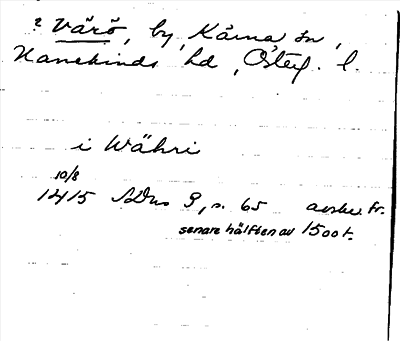 ? Värö, by, Kärna sn,
Hanekinds hd, Österg. l.
i Währi
10/8
1415 SDns 9, s. 65 avskr. fr.
senare hälften av 1500 t.